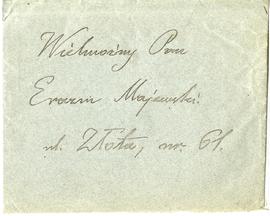 Wielmożny Pan
Erazm Majewski
ul. Złota, nr. 61.